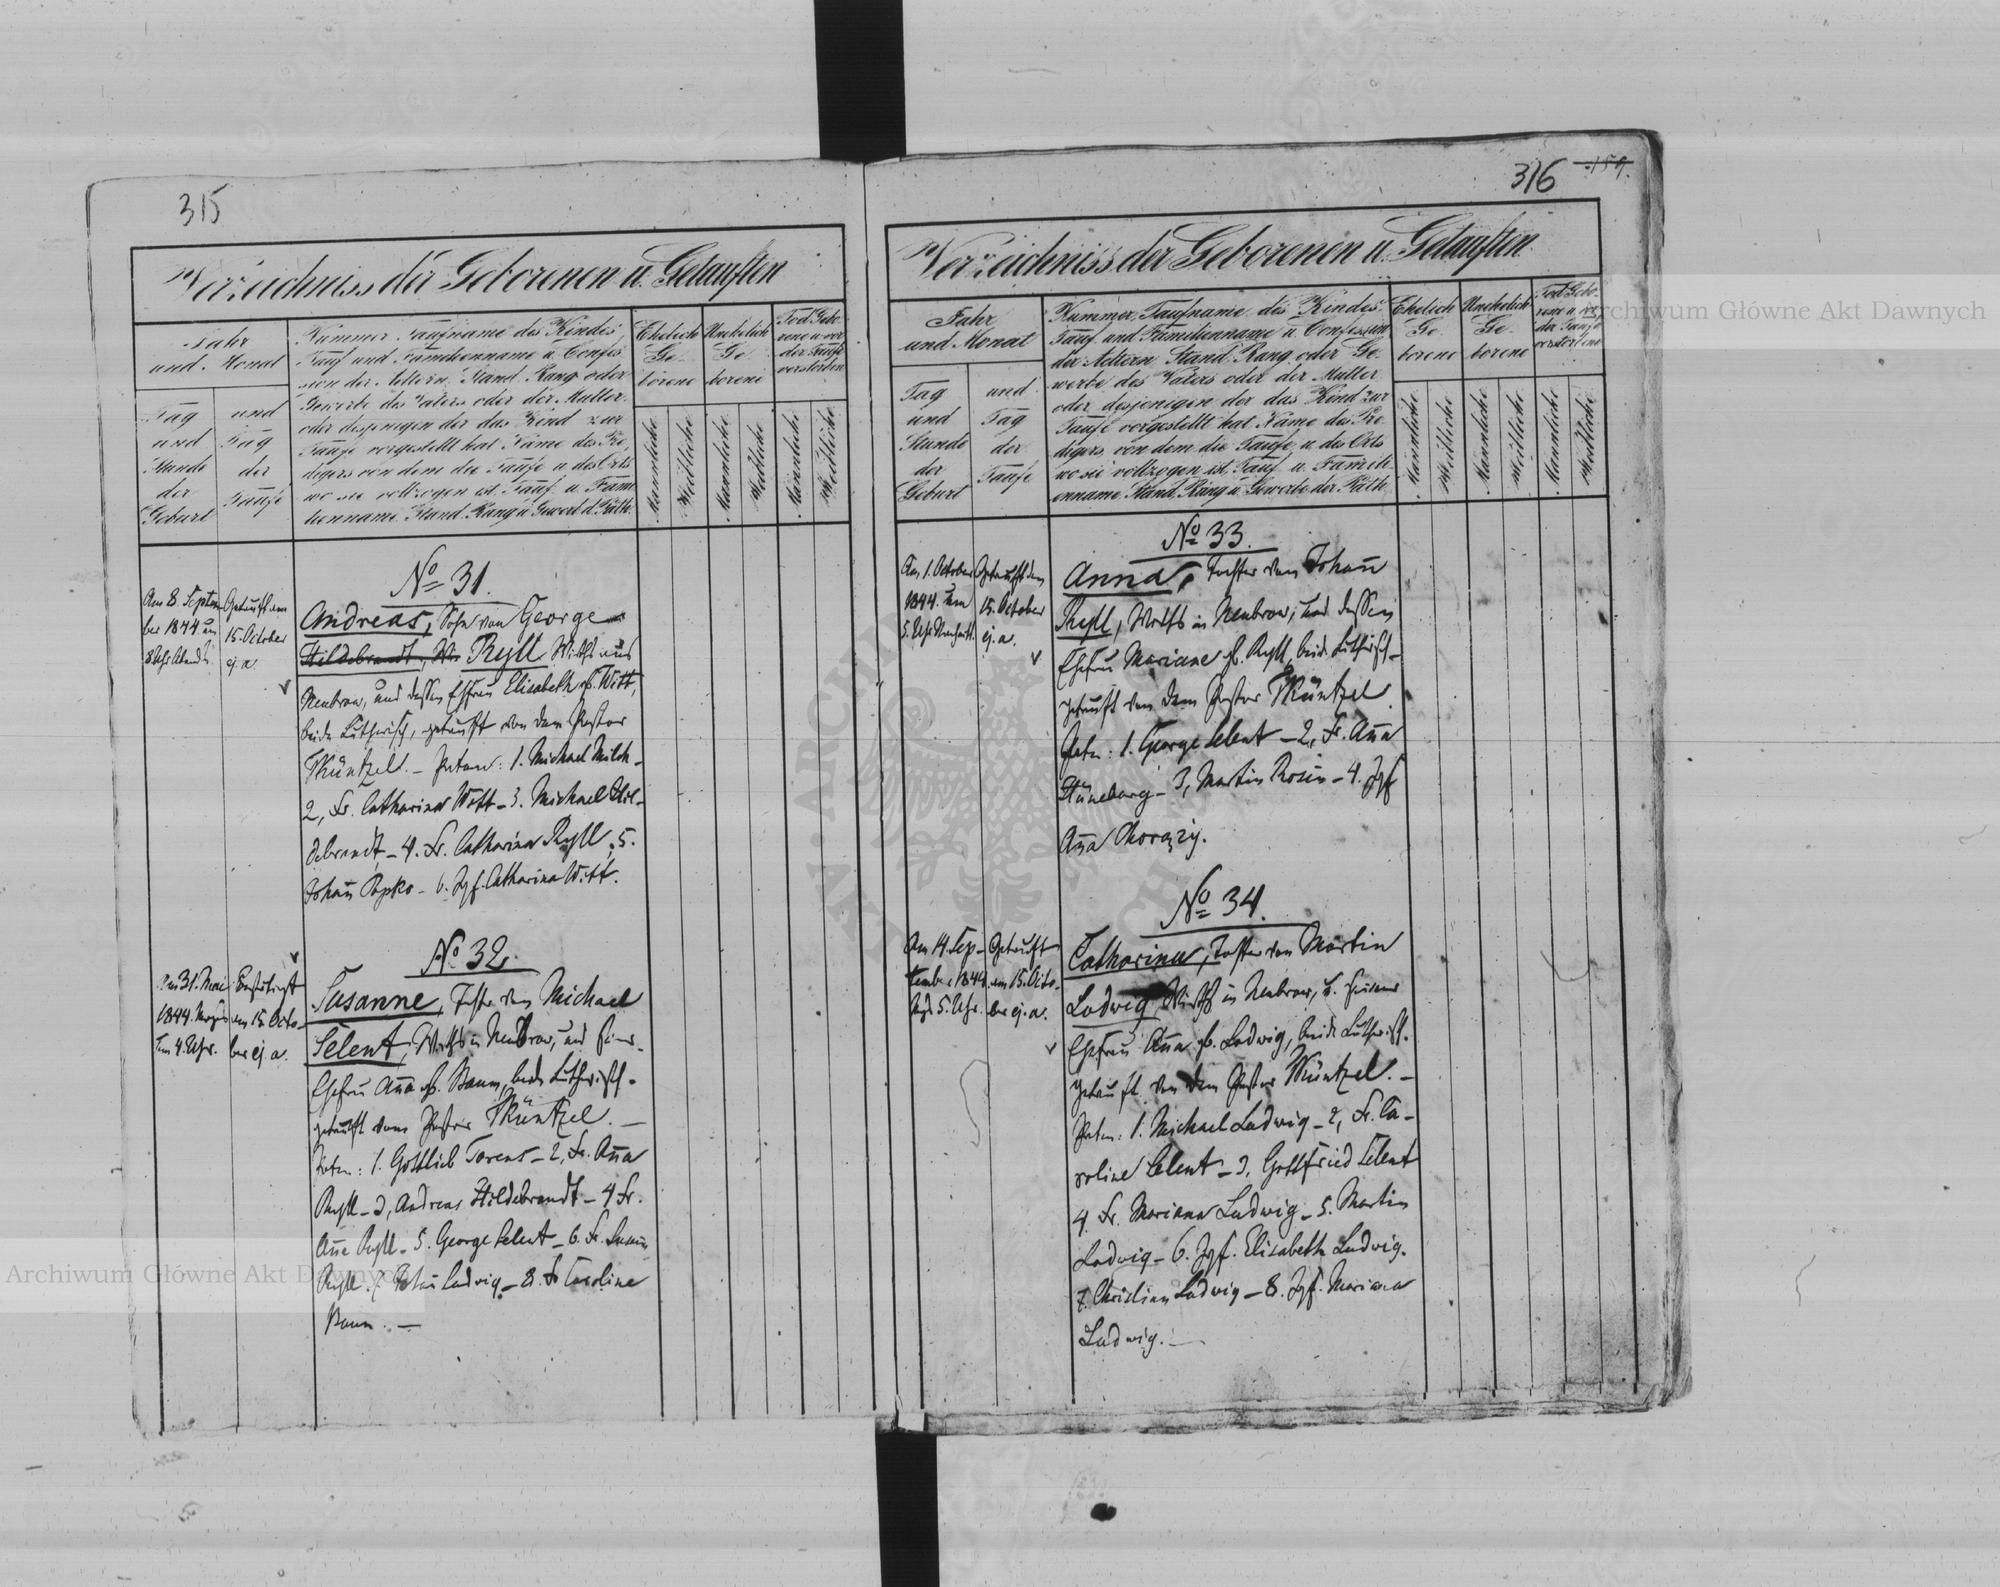 315
Verzeichniss der Geborenen u. Getauften
Jahr
und Monat
Tag
und
Stunde
der
Geburt
und
Tag
der
Taufe
Nummer Taufname des Kindes
Tauf und Familienname u Confes
sion der Aeltern, Stand Rang oder
Gewerbe des Vaters oder der Mutter
oder desjenigen der das Kind zur
Taufe vorgestellt hat Name des Pre
digers von dem die Taufe u des Orts
wo sie vollzogen ist Tauf u Fami
lienname Stand Rang u Gewerb d. Path.
Ehelich
Ge
borene
Unehelich
Ge
borene
Tod Gebo-
rene u vor
der Taufe
verstorben
Männliche
Weibliche
Männliche
Weibliche
Männliche
Weibliche
Am 8. Septem
ber 1844 um
8 Uhr Abends
Getauft am
15. October
ej. a.
No 31.
Andreas, Sohn von George
Hildebrandt, Wir Ryll Wirths aus
Neubrow, und dessen Ehefrau Elisabeth gb. Witt,
beide Lutherisch, getauft von dem Pastor
Müntzel. – Paten: 1. Michael Milch –
2, Fr. Catharina Witt – 3. Michael Hil-
debrandt – 4. Fr. Catharina Ryll, 5.
Johañ Popko – 6. Jgf. Catharina Witt.
Am 31. Mai
1844. Morgens
um 4. Uhr.
am 15. Octo-
ber ej. a.
No 32.
Susanne, Tochter von Michael
Selent, Wirths in Neubrow, und seiner
Ehefrau Aña gb. Baum, beide Lutherisch.
getauft vom Pastor Müntzel. –
Paten: 1. Gottlieb Torens – 2, Fr. Aña
Ryll – 3, Andreas Hildebrandt – 4 Fr.
Aña Ryll – 5. George Selent – 6. Fr. Susaña
Ryll. 7. Johañ Ludwig – 8. Fr Caroline
Baum. –
316
159.
Verzeichniss der Geborenen u. Getauften
Jahr
und Monat
Tag
und
Stunde
der
Geburt
und
Tag
der
Taufe
Nummer, Taufname des Kindes
Tauf und Familienname u Confession
der Aeltern Stand Rang oder Ge
werbe des Vaters oder der Mutter
oder desjenigen der das Kind zur
Taufe vorgestellt hat Name des Pre
digers von dem die Taufe u des Orts
wo sie vollzogen ist Tauf u Famili
enname Stand Rang u Gewerbe der Path.
Ehelich
Ge
borene
Unehelich
Ge
borene
Tod Gebo-
rene u. vor
der Taufe
verstorbene
Männliche
Weibliche
Männliche
Weibliche
Männliche
Weibliche
Am 1. October
1844. um
5. Uhr Nachmitt.
Getauft den
15. October
ej. a.
No 33.
Anna, Tochter von Johañ
Ryll, Wirths in Neubrow, und dessen
Ehefrau Mariane gb. Ryll, beide Lutherisch –
getauft von dem Pastor Müntzel.
Paten: 1. George Selent – 2, Fr. Aña
Hüneburg – 3, Martin Rosin – 4. Jgf
Aña Chorązy.
Am 14. Sep-
tember 1844
Mgs 5. Uhr.
Getauft
am 15. Octo-
ber ej. a.
No 34.
Catharina, Tochter von Martin
Ludwig Wirths in Neubrow, u. seiner
Ehefrau Aña gb. Ludwig, beide Lutherisch.
getauft von dem Pastor Müntzel. –
Paten: 1. Michael Ludwig – 2, Fr. Ca-
roline Selent – 3. Gottfried Selent
4. Fr. Mariana Ludwig – 5. Martin
Ludwig – 6. Jgf. Elisabeth Ludwig.
7. Christian Ludwig – 8. Jgf. Mariana
Ludwig. –
Archiwum Główne Akt Dawnych
Archiwum Główne Akt Dawnych